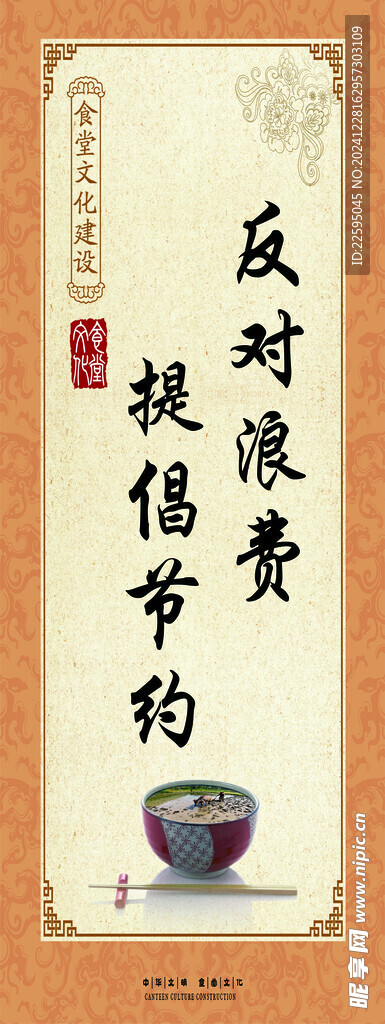 食堂文化建设
食堂文化
反对浪费
提倡节约
中华文明 食尚文化
CANTEEN CULTURE CONSTRUCTION
ID:22595045 NO:20241228162957303109
昵享网 www.nipic.cn